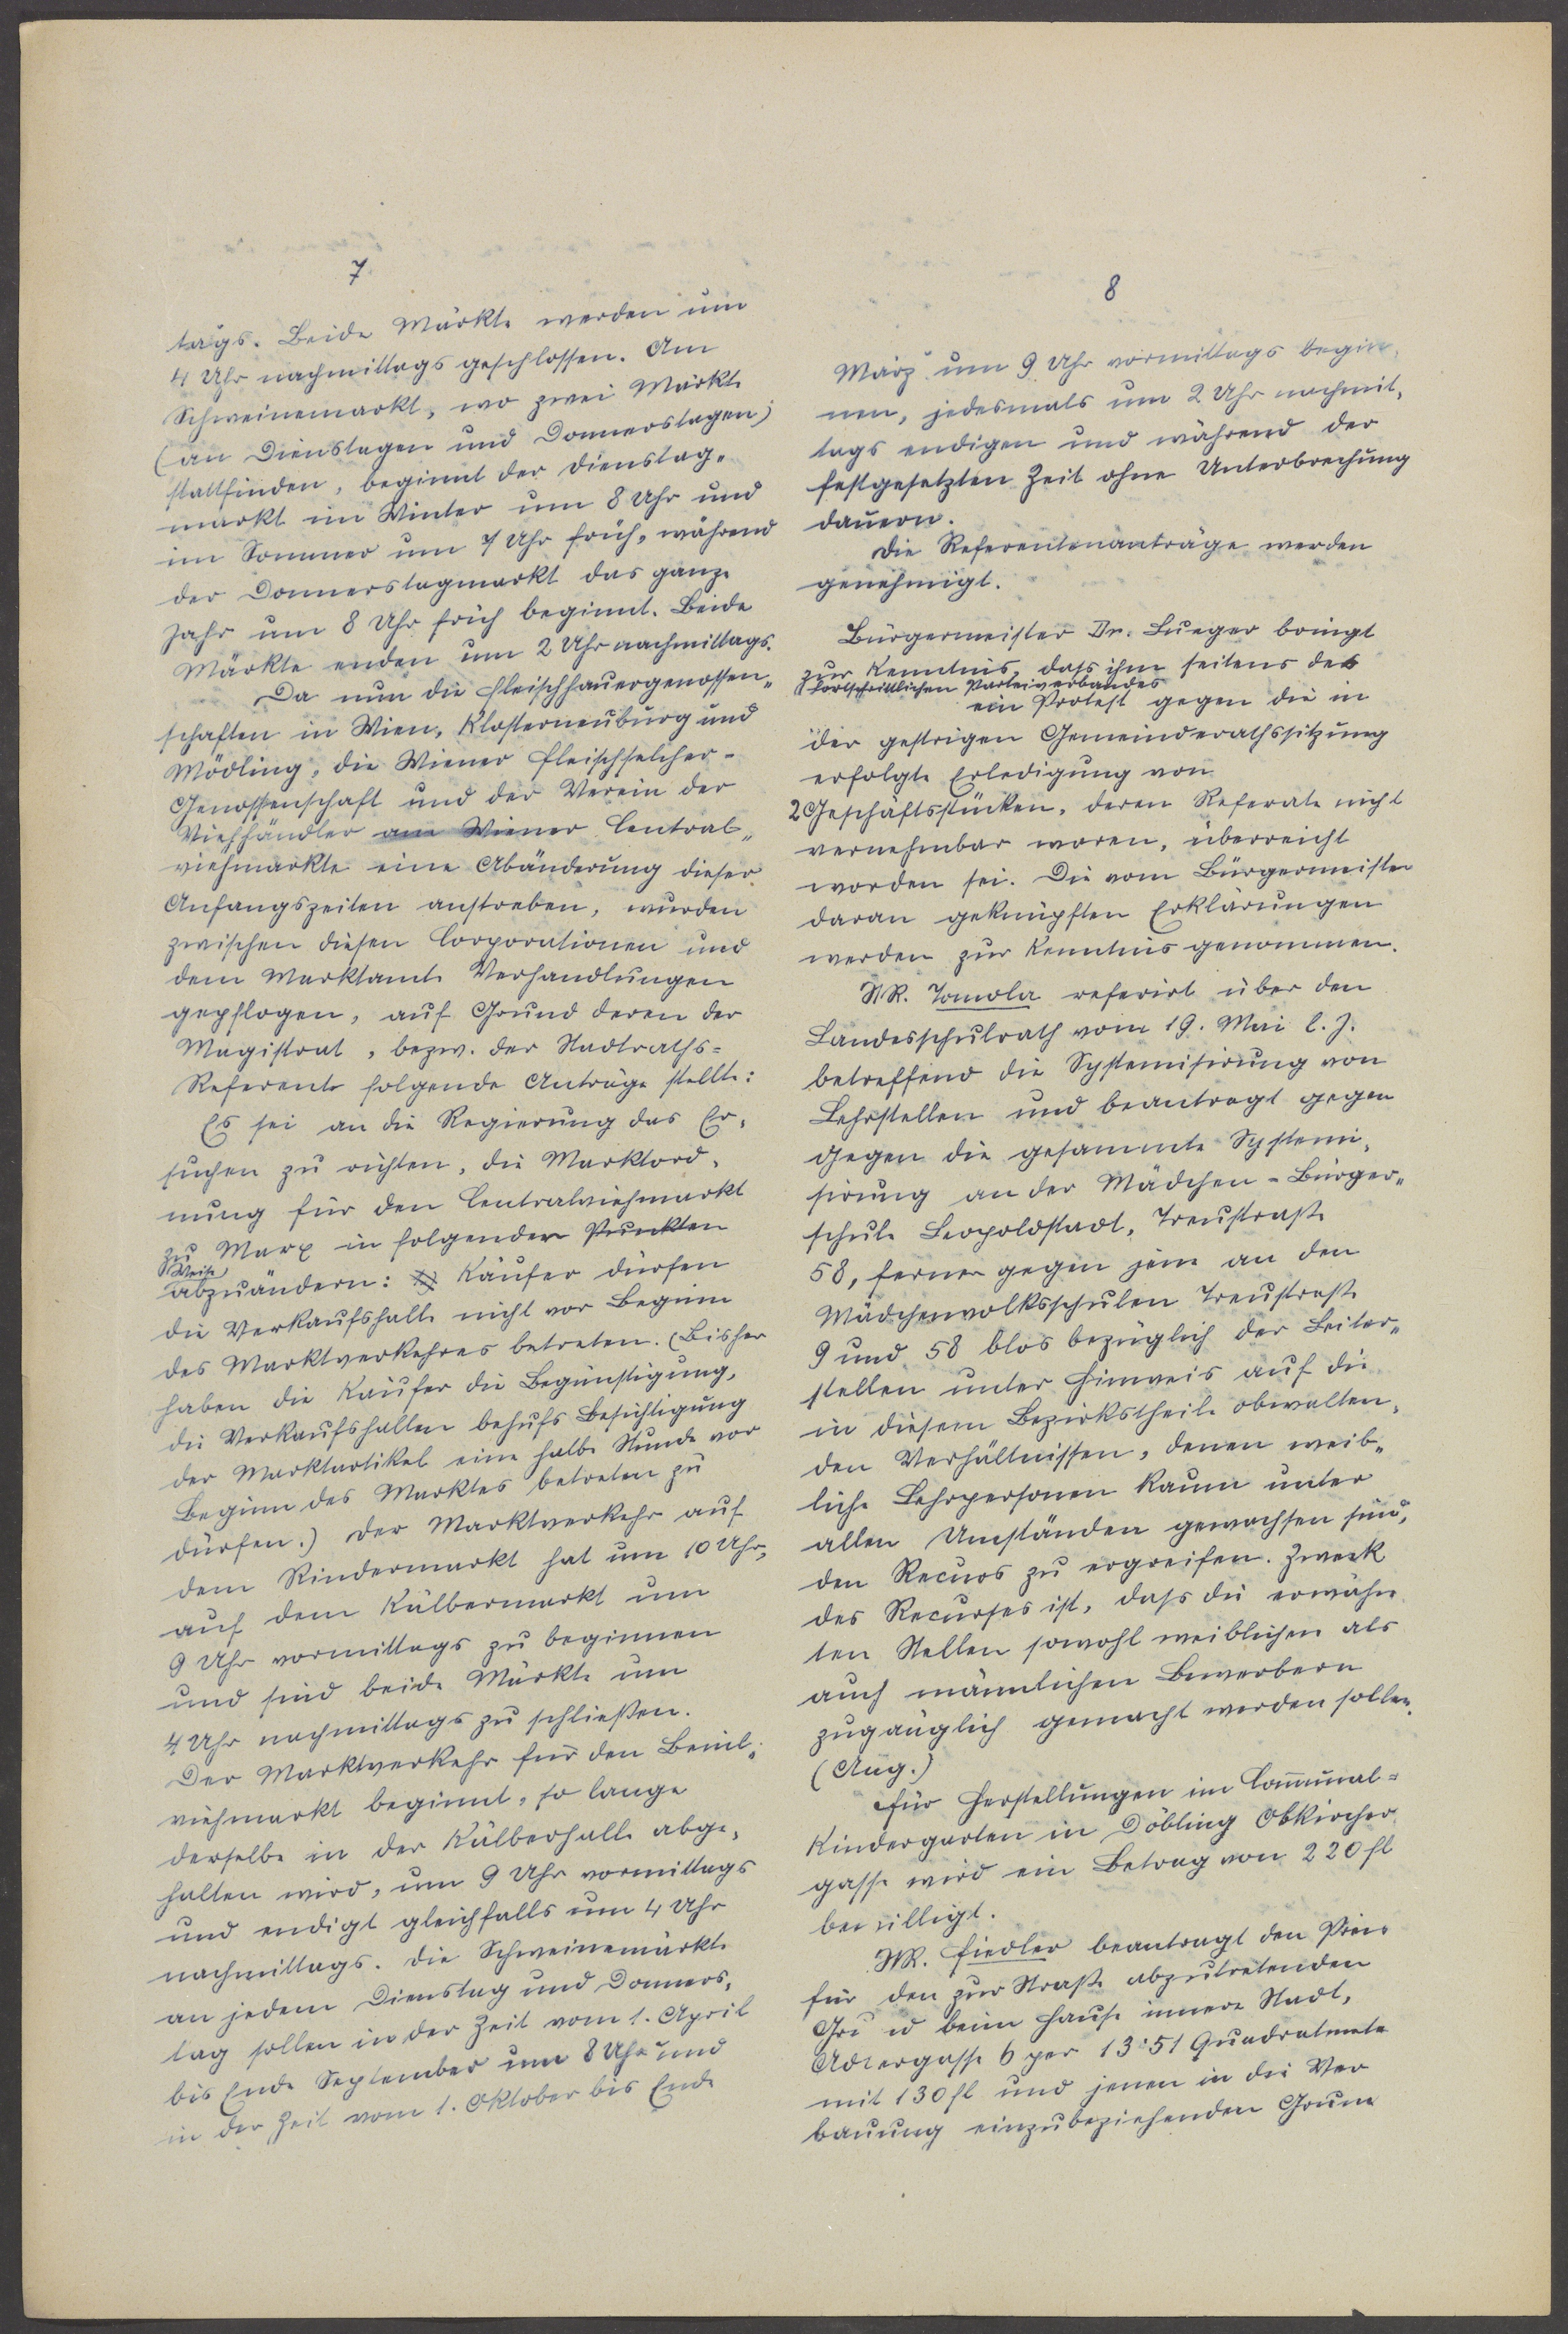 7
tags. Beide Märkte werden um
4 Uhr nachmittags geschlossen. Am
Schweinemarkt, wo zwei Märkte
(an Dienstagen und Donnerstagen)
stattfinden, beginnt der Dienstag-
markt im Winter um 8 Uhr und
im Sommer um 7 Uhr früh, während
der Donnerstagmarkt das ganze
Jahr um 8 Uhr früh beginnt. Beide
Märkte enden um 2 Uhr nachmittags.
Da nun die Fleischhauergenossen-
schaften in Wien, Klosterneuburg und
Mödling, die Wiener Fleischselcher-
Genossenschaft und der Verein der
Viehhändler am Wiener Central-
viehmarkte eine Abänderung dieser
Anfangszeiten anstreben, wurden
zwischen diesen Corporationen und
dem Marktamte Verhandlungen
gepflogen, auf Grund deren der
Magistrat, bezw. der Stadtraths-
Referente folgende Anträge stellte:
Es sei an die Regierung das Er-
suchen zu richten, die Marktord-
nung für den Centralviehmarkt
zu Marx in folgender Punkten
Weise
abzuändern: Käufer dürfen
die Verkaufshalle nicht vor Beginn
des Marktverkehres betreten. (Bisher
haben die Käufer die Begünstigung,
die Verkaufshallen behufs Besichtigung
der Marktartikel eine halbe Stunde vor
Beginn des Marktes betreten zu
dürfen.) Der Marktverkehr auf
dem Rindermarkt hat um 10 Uhr,
auf dem Kälbermarkt um
9 Uhr vormittags zu beginnen
und sind beide Märkte um
4 Uhr nachmittags zu schließen.
Der Marktverkehr für den Beinl-
viehmarkt beginnt, so lange
derselbe in der Kälberhalle abge-
halten wird, um 9 Uhr vormittags
und endigt gleichfalls um 4 Uhr
nachmittags. Die Schweinemärkte
an jedem Dienstag und Donners-
tag sollen in der Zeit vom 1. April
bis Ende September um 8 Uhr und
in der Zeit vom 1. Oktober bis Ende
8
März um 9 Uhr vormittags begin-
nen, jedesmals um 2 Uhr nachmit-
tags endigen und während der
festgesetzten Zeit ohne Unterbrechung
dauern.
Die Referentenanträge werden
genehmigt.
Bürgermeister Dr. Lueger bringt
zur Kenntnis, dass ihm seitens des
fortschrittlichen Parteiverbandes
ein Protest gegen die in
der gestrigen Gemeinderathssitzung
erfolgte Erledigung von
2 Geschäftsstücken, deren Referate nicht
vernehmbar waren, überreicht
worden sei. Die vom Bürgermeister
daran geknüpften Erklärungen
werden zur Kenntnis genommen.
StR. Tomola referirt über den
Landesschulrath vom 19. Mai l. J.
betreffend die Systemisirung von
Lehrstellen und beantragt gegen
gegen die gesammte Systemi-
sirung an der Mädchen-Bürger-
schule Leopoldstadt, Treustraße
58, ferner gegen jene an den
Mädchenvolksschulen Treustraße
9 und 58 blos bezüglich der Leiter-
stellen unter Hinweis auf die
in diesem Bezirkstheile obwalten-
den Verhältnissen, denen weib-
liche Lehrpersonen kaum unter
allen Umständen gewachsen sind,
den Recurs zu ergreifen. Zweck
des Recurses ist, dass die erwähn
ten Stellen sowohl weiblichen als
auch männlichen Bewerbern
zugänglich gemacht werden sollen.
(Ang.)
Für Herstellungen im Communal-
Kindergarten in Döbling Obkircher
gasse wird ein Betrag von 220 fl
bewilligt.
StR. Fiedler beantragt den Preis
für den zur Straße abzutretenden
Grund beim Hause innere Stadt,
Adlergasse 6 per 13.51 Quadratmete
mit 130 fl und jenen in die Ver
bauung einzubeziehenden Grund